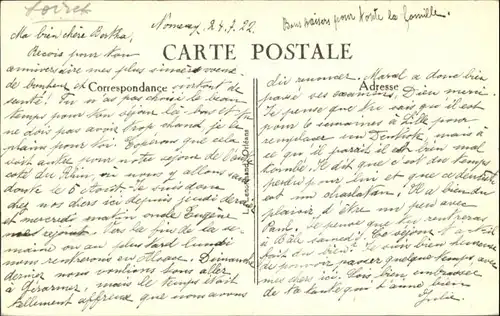 Loiret
Nomeny 24.7.22
Bons baisers pour toute la famille.
Ma bien chère Bertha,
CARTE POSTALE
Correspondance
Adresse
Reçois pour ton
anniversaire mes plus sincères voeux
de bonheur et surtout de
santé! Tu n'as pas choisi le beau
temps pour ton séjour là-bas et tu
ne dois pas avoir trop chaud, je te
plains pour toi. Espérons que cela
soit autre pour notre séjour de l'autre
côté du Rhin, où nous y allons sans
doute le 6 Août. Je suis donc
chez nos chers ici depuis jeudi dernier
et mercredi matin oncle Eugène
mes rejoint. Vers la fin de la se-
maine ou au plus tard lundi
nous rentrerons en Alsace. Dimanche
dernier nous voulions tous aller
à Gérarmer, mais le temps était
tellement affreux que nous avons
dû renoncer. Marcel a donc bien
passé ses examens, Dieu merci.
Je pense que tu sais qu'il est
pour 6 semaines à Lille pour
remplacer un Dentiste, mais à
ce qu'il paraît il est bien mal
tombé. Il dit que c'est du temps
perdu pour lui et ce dentiste
est un charlatan. Il a bien du
plaisir d'être un peu avec
Paul. Je pense que tu rentreras
à Bâle samedi. Ce séjour t'a-t-il
fait du bien? Je suis bien heureuse
de pouvoir passer quelque temps avec
mes chers ici. Bien embrassée
de ta tante qui t'aime bien
Julie